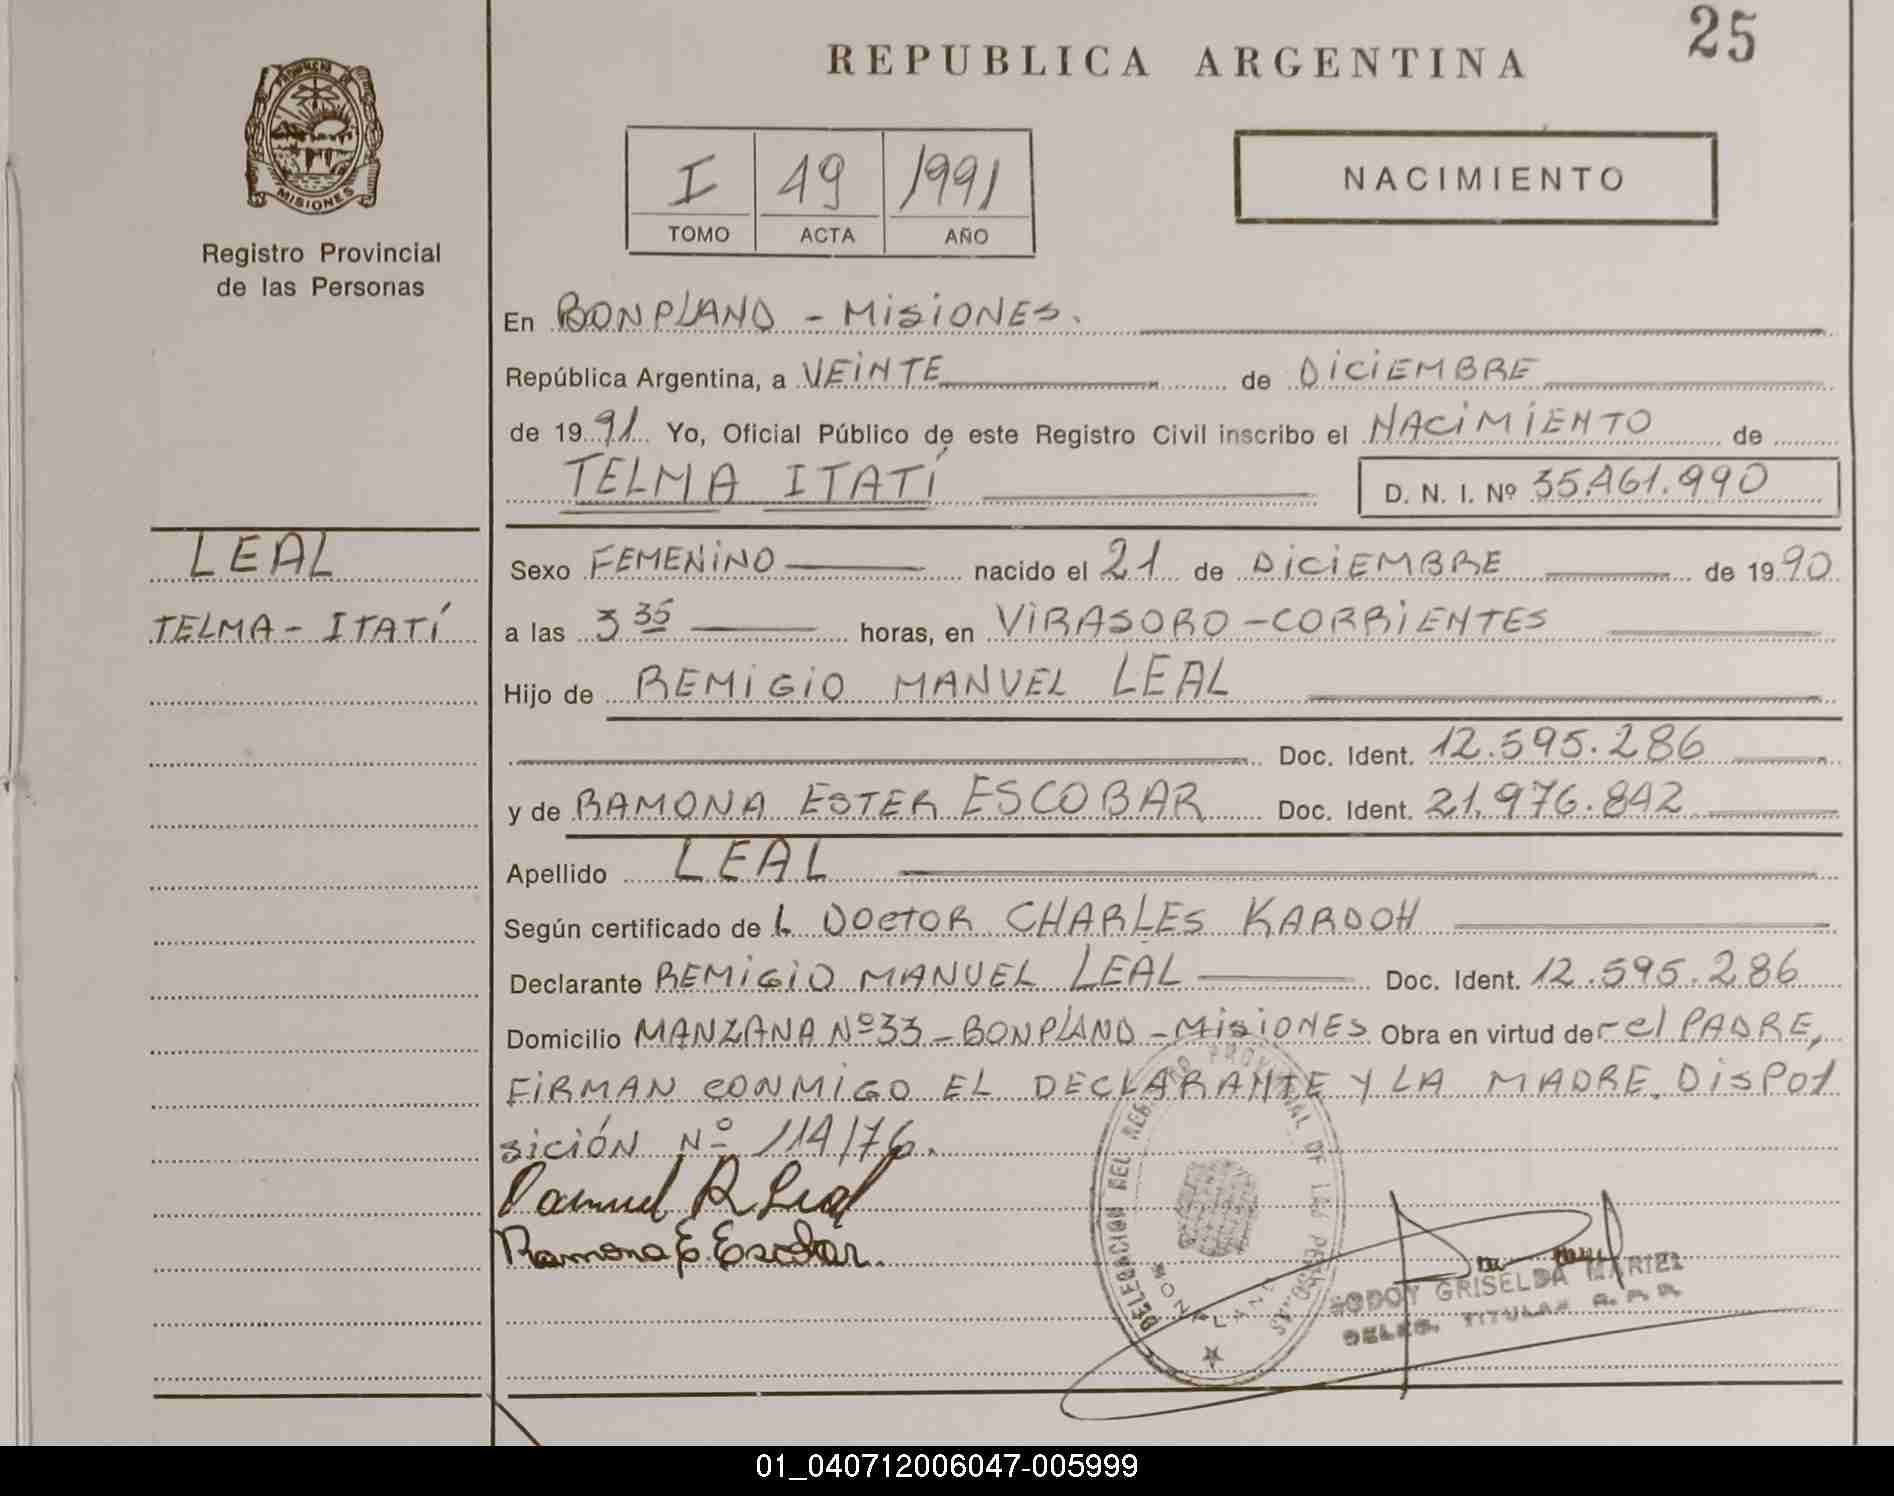 25
REPUBLICA ARGENTINA
PROVINCIA DE
MISIONES
Registro Provincial
de las Personas
I 49 1991
TOMO ACTA AÑO
NACIMIENTO
En BONPLAND - MISIONES.
República Argentina, a VEINTE de DICIEMBRE
de 1991 Yo, Oficial Público de este Registro Civil inscribo el NACIMIENTO de
TELMA ITATÍ D. N. I. Nº 35.461.990
LEAL
TELMA - ITATÍ
Sexo FEMENINO nacido el 21 de DICIEMBRE de 1990
a las 3 35 horas, en VIRASORO - CORRIENTES
Hijo de REMIGIO MANUEL LEAL
Doc. Ident. 12.595.286
y de RAMONA ESTER ESCOBAR Doc. Ident. 21.976.842
Apellido LEAL
Según certificado de L DOCTOR CHARLES KARDOH
Declarante REMIGIO MANUEL LEAL Doc. Ident. 12.595.286
Domicilio MANZANA Nº 33 - BONPLAND - MISIONES Obra en virtud de r el PADRE,
FIRMAN CONMIGO EL DECLARANTE Y LA MADRE. DISPO1
SICIÓN Nº 114/76.
Manuel R. Leal
Ramona E. Escobar.
DELEGACION DEL REGISTRO PROVINCIAL DE LAS PERSONAS
BONPLAND
GODOY GRISELDA MARIEL
DELEG. TITULAR R. P. P.
01_040712006047-005999